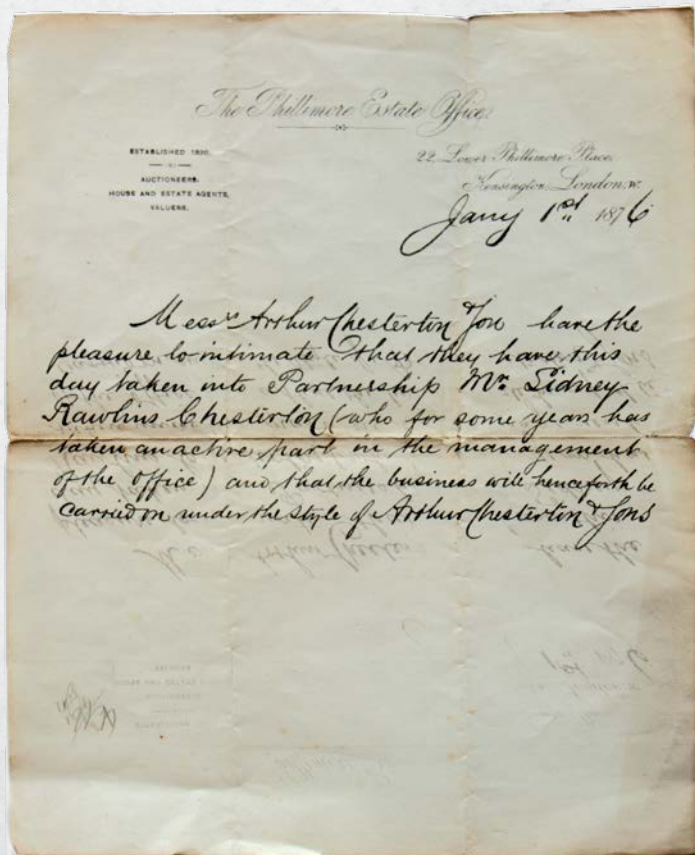 The Phillimore Estate Office.
ESTABLISHED 1800.
AUCTIONEERS.
HOUSE AND ESTATE AGENTS,
VALUERS.
22 Lower Phillimore Place,
Kensington, London, W.
Jany 1st 1876
Messrs Arthur Chesterton & Son have the
pleasure to intimate that they have this
day taken into Partnership Mr Sidney
Rawlins Chesterton (who for some years has
taken an active part in the management
of the office) and that the business will henceforth be
carried on under the style of Arthur Chesterton & Sons